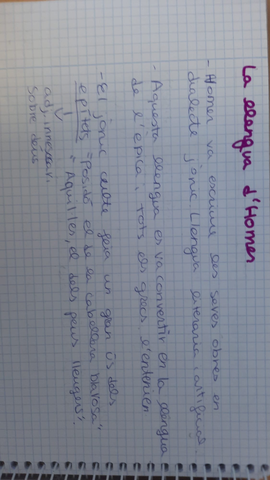 La llengua d'Homer
- Homer va escriure les seves obres en
dialecte jònic (llengua literària i artificial)
- Aquesta llengua es va convertir en la llengua
de l'èpica i tots els grecs l'entenien
- El jònic culte feia un gran ús dels
epítets "Posidó el de la cabellera blavosa"
"Aquil·les, el dels peus lleugers"
adj. innecessari.
sobre deus